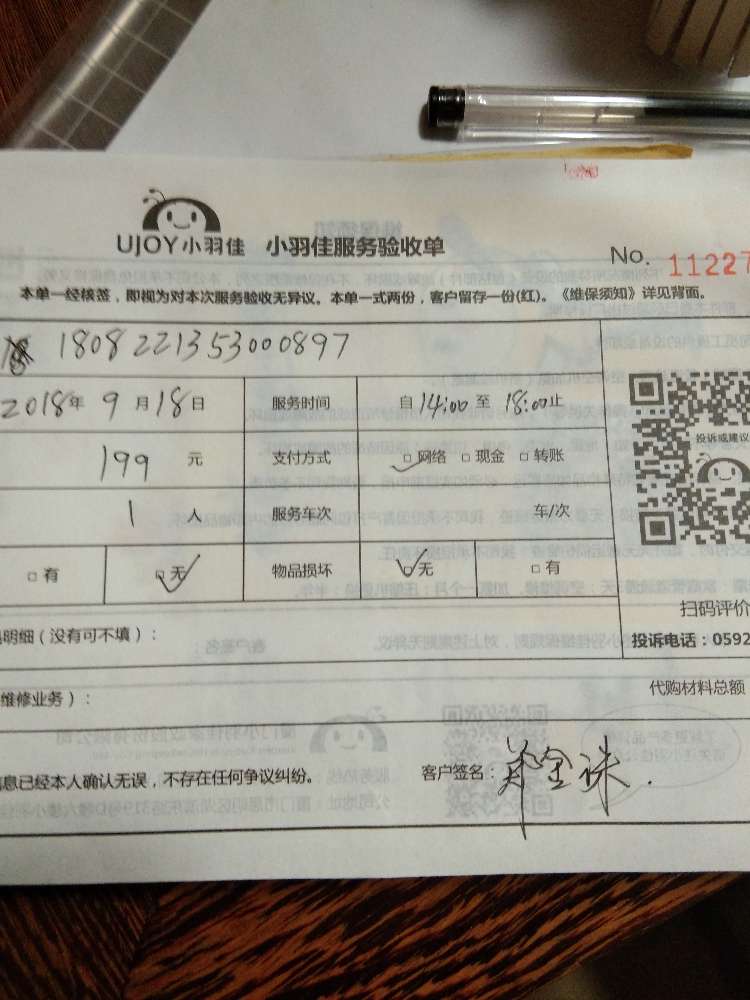 UJOY小羽佳 小羽佳服务验收单
No. 11227
本单一经核签，即视为对本次服务验收无异议。本单一式两份，客户留存一份(红)。《维保须知》详见背面。
1808221353000897
2018年 9月18日 服务时间 自14:00至18:00止
199 元 支付方式 □网络 □现金 □转账
投诉或建议
1 人 服务车次 车/次
□有 □无 物品损坏 □无 □有
扫码评价
明细（没有可不填）：
投诉电话：0592
维修业务）：
代购材料总额
息已经本人确认无误，不存在任何争议纠纷。 客户签名：